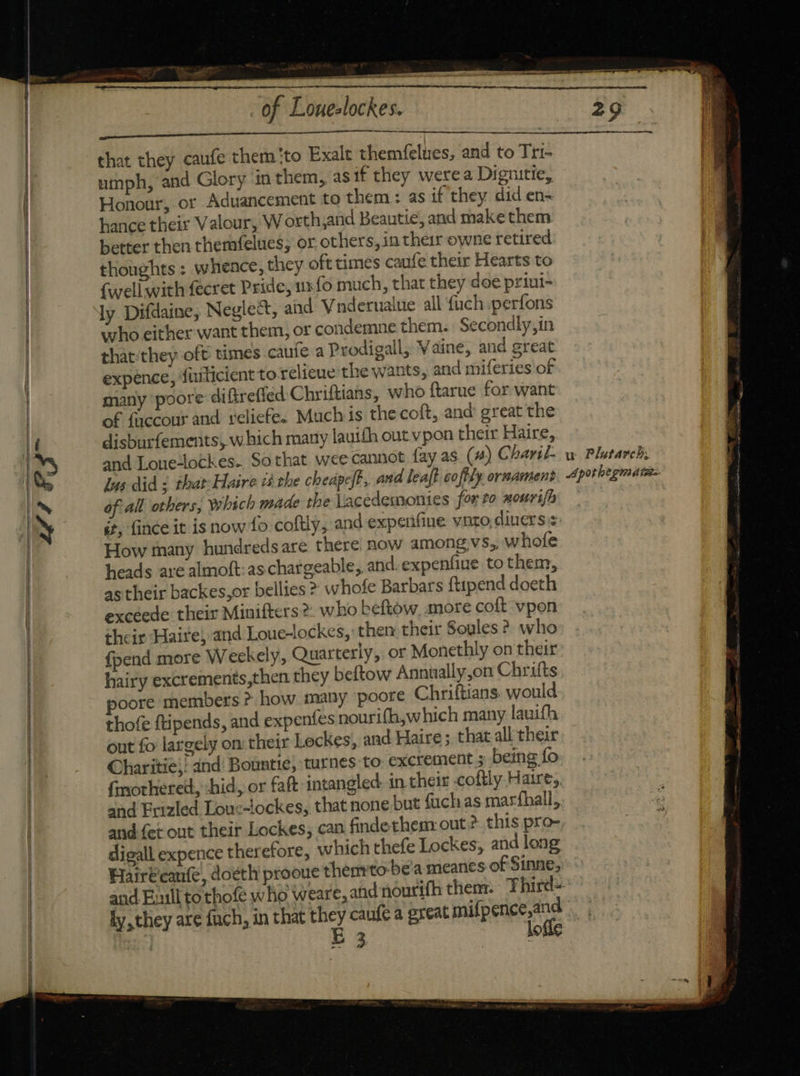 of Loue-lockes. 29
that they cauſe them to Exalt themſelues, and to Tri-
umph, and Glory in them, as if they were a Dignitie,
Honour, or Aduancement to them: as if they did en-
hance their Valour, Worth, and Beautie, and make them
better then themſelues, or others, in their owne retired
thoughts: whence, they oft times cauſe their Hearts to
ſwell with ſecret Pride, in ſo much, that they doe priui-
ly Diſdaine, Neglect, and Vnderualue all ſuch perſons
who either want them, or condemne them. Secondly, in
that they oft times cauſe a Prodigall, Vaine, and great
expence, ſufficient to relieue the wants, and miſeries of
many poore diſtreſſed Chriſtians, who ſtarue for want
of ſuccour and reliefe. Much is the coſt, and great the
disburſements, which many lauiſh out vpon their Haire,
and Loue-lockes. So that wee cannot ſay as (u) Charil- u Plutarch,
lus did; that Haire is the cheapeſt, and leaſt coſtly ornament Apothegmata.
of all others, which made the Lacedemonies for to nouriſh
it, ſince it is now ſo coſtly, and expenſiue vnto diuers:
How many hundreds are there now among vs, whoſe
heads are almoſt as chargeable, and expenſiue to them,
as their backes, or bellies? whoſe Barbars ſtipend doeth
exceede their Miniſters? who beſtow more coſt vpon
their Haire, and Loue-lockes, then their Soules? who
ſpend more Weekely, Quarterly, or Monethly on their
hairy excrements, then they beſtow Annually, on Chriſts
poore members? how many poore Chriſtians would
thoſe ſtipends, and expenſes nouriſh, which many lauiſh
out ſo largely on their Lockes, and Haire; that all their
Charitie, and Bountie, turnes to excrement; being ſo
ſmothered, hid, or faſt intangled in their coſtly Haire,
and Frizled Loue-lockes, that none but ſuch as marſhall,
and ſet out their Lockes, can finde them out? this pro-
digall expence therefore, which theſe Lockes, and long
Haire cauſe, doeth prooue them to be a meanes of Sinne,
and Euill to thoſe who weare, and nouriſh them. Third-
ly, they are ſuch, in that they cauſe a great miſpence, and
E 3 loſſe